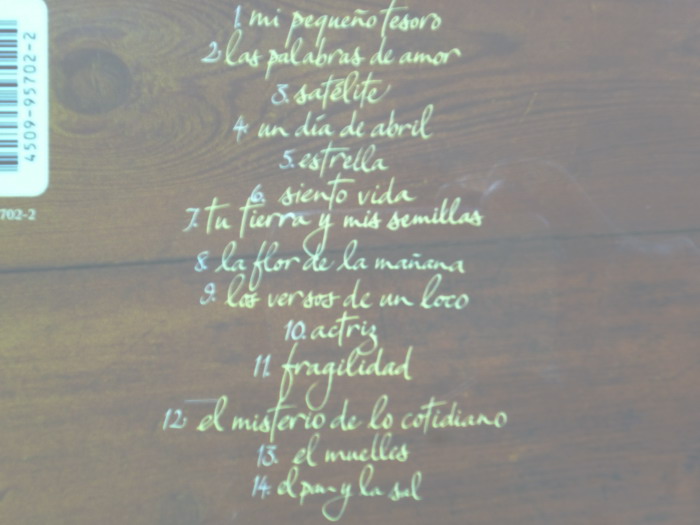 4509-95702-2
702-2
1. mi pequeño tesoro
2. las palabras de amor
3. satélite
4. un día de abril
5. estrella
6. siento vida
7. tu tierra y mis semillas
8. la flor de la mañana
9. los versos de un loco
10. actriz
11. fragilidad
12. el misterio de lo cotidiano
13. el muelles
14. el pan y la sal